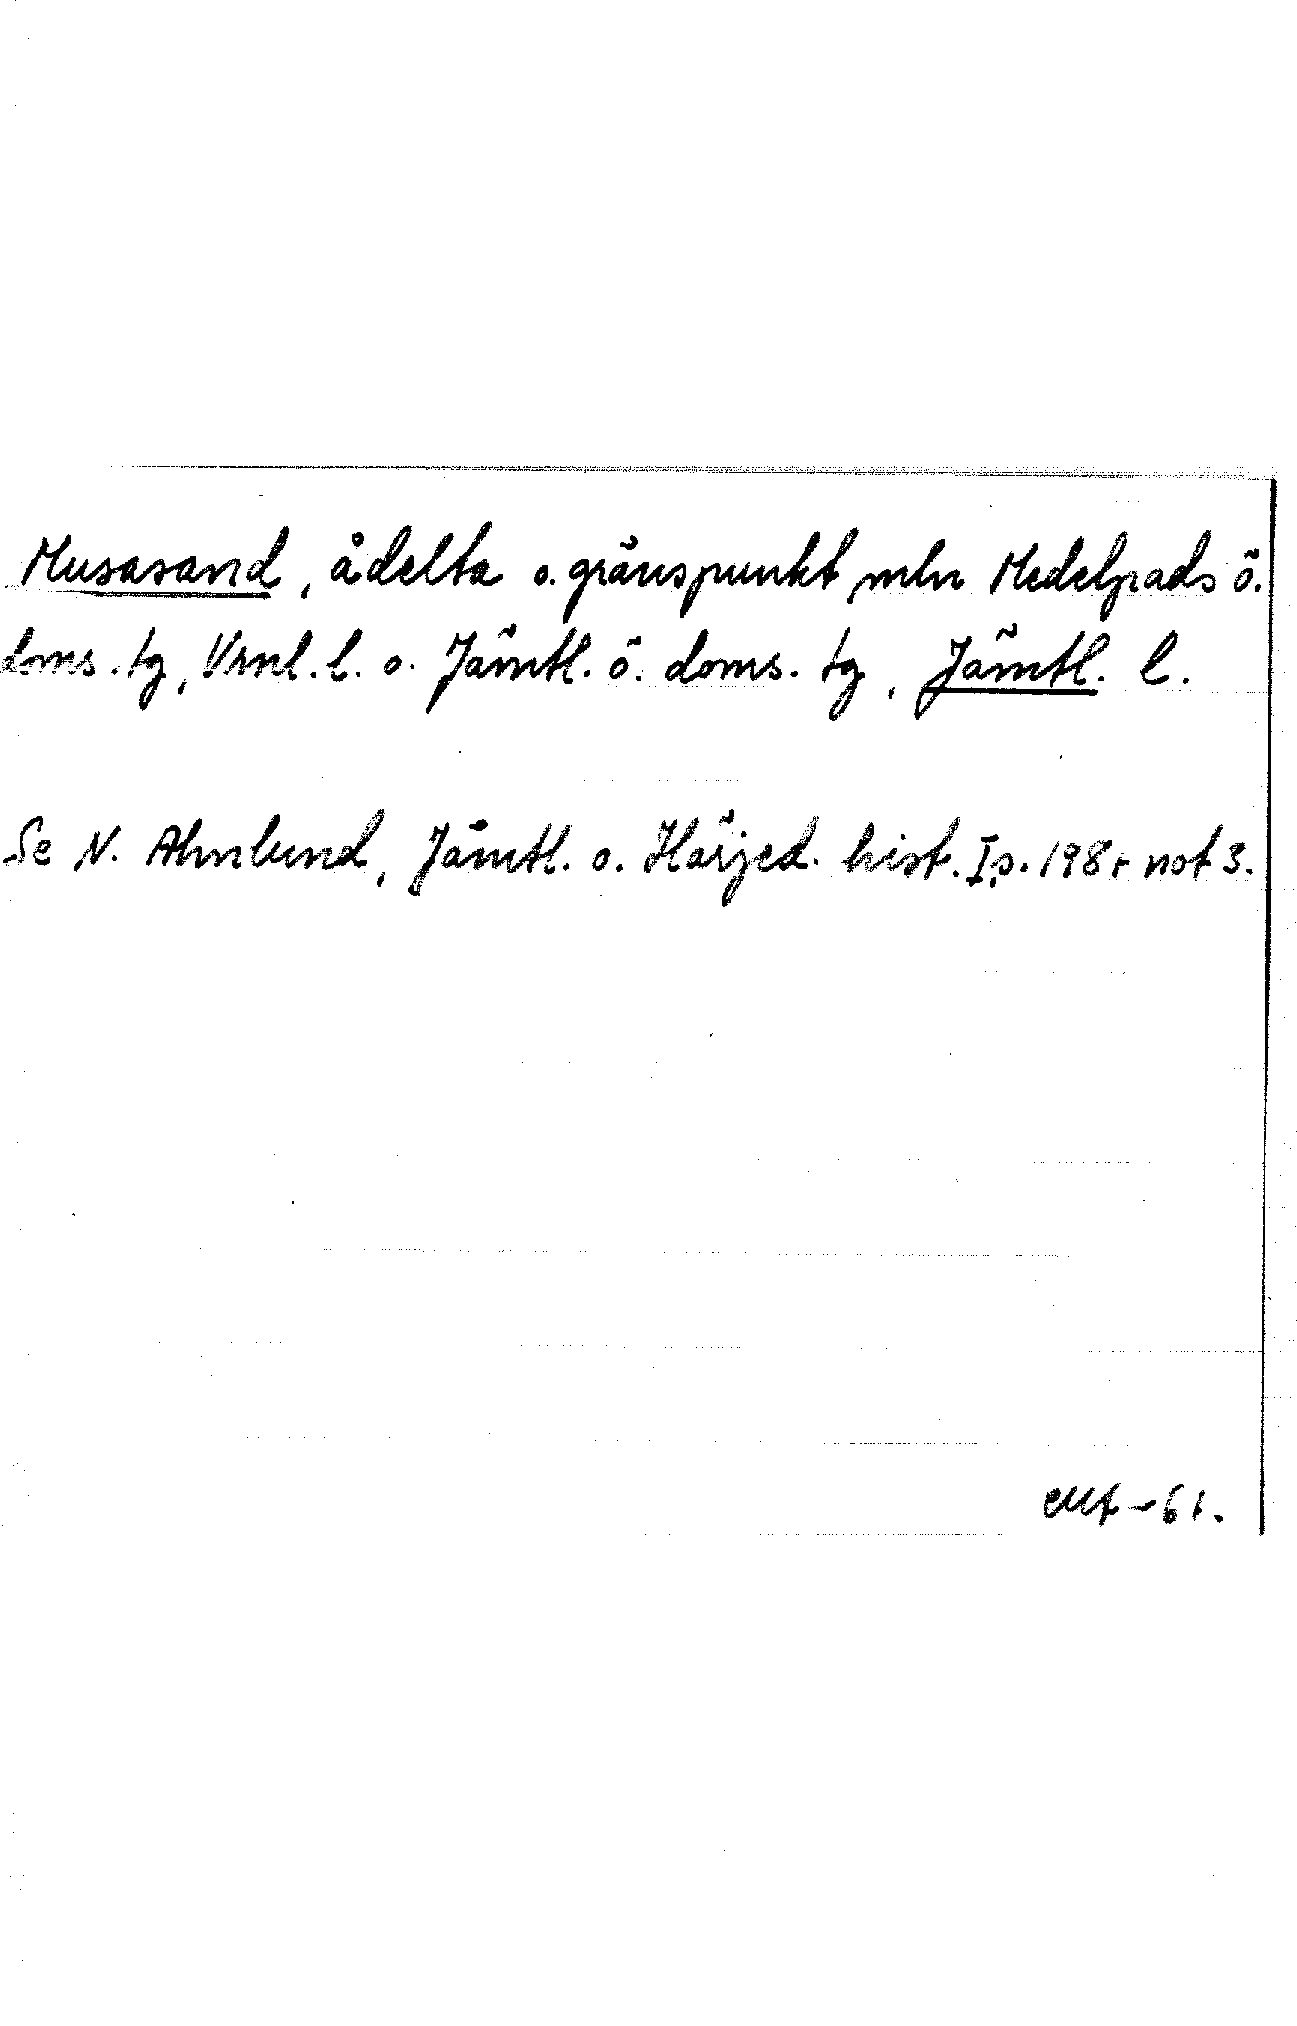 Musasand, ådelta o. gränspunkt mln Medelpads ö.
doms. tg, Vrnl. l. o. Jämtl. ö. doms. tg, Jämtl. l.
Se N. Ahnlund, Jämtl. o. Härjed. hist. I, s. 198 + not 3.
-61.